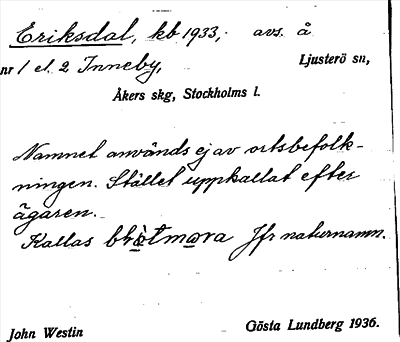 Eriksdal, kb 1933,. avs. å
nr 1 el. 2 Inneby, Ljusterö sn,
Åkers skg, Stockholms l.
Namnet användes ej av ortsbefolk-
ningen. Stället uppkallat efter
ägaren.
Kallas Jfr naturnamn.
John Westin Gösta Lundberg 1936.